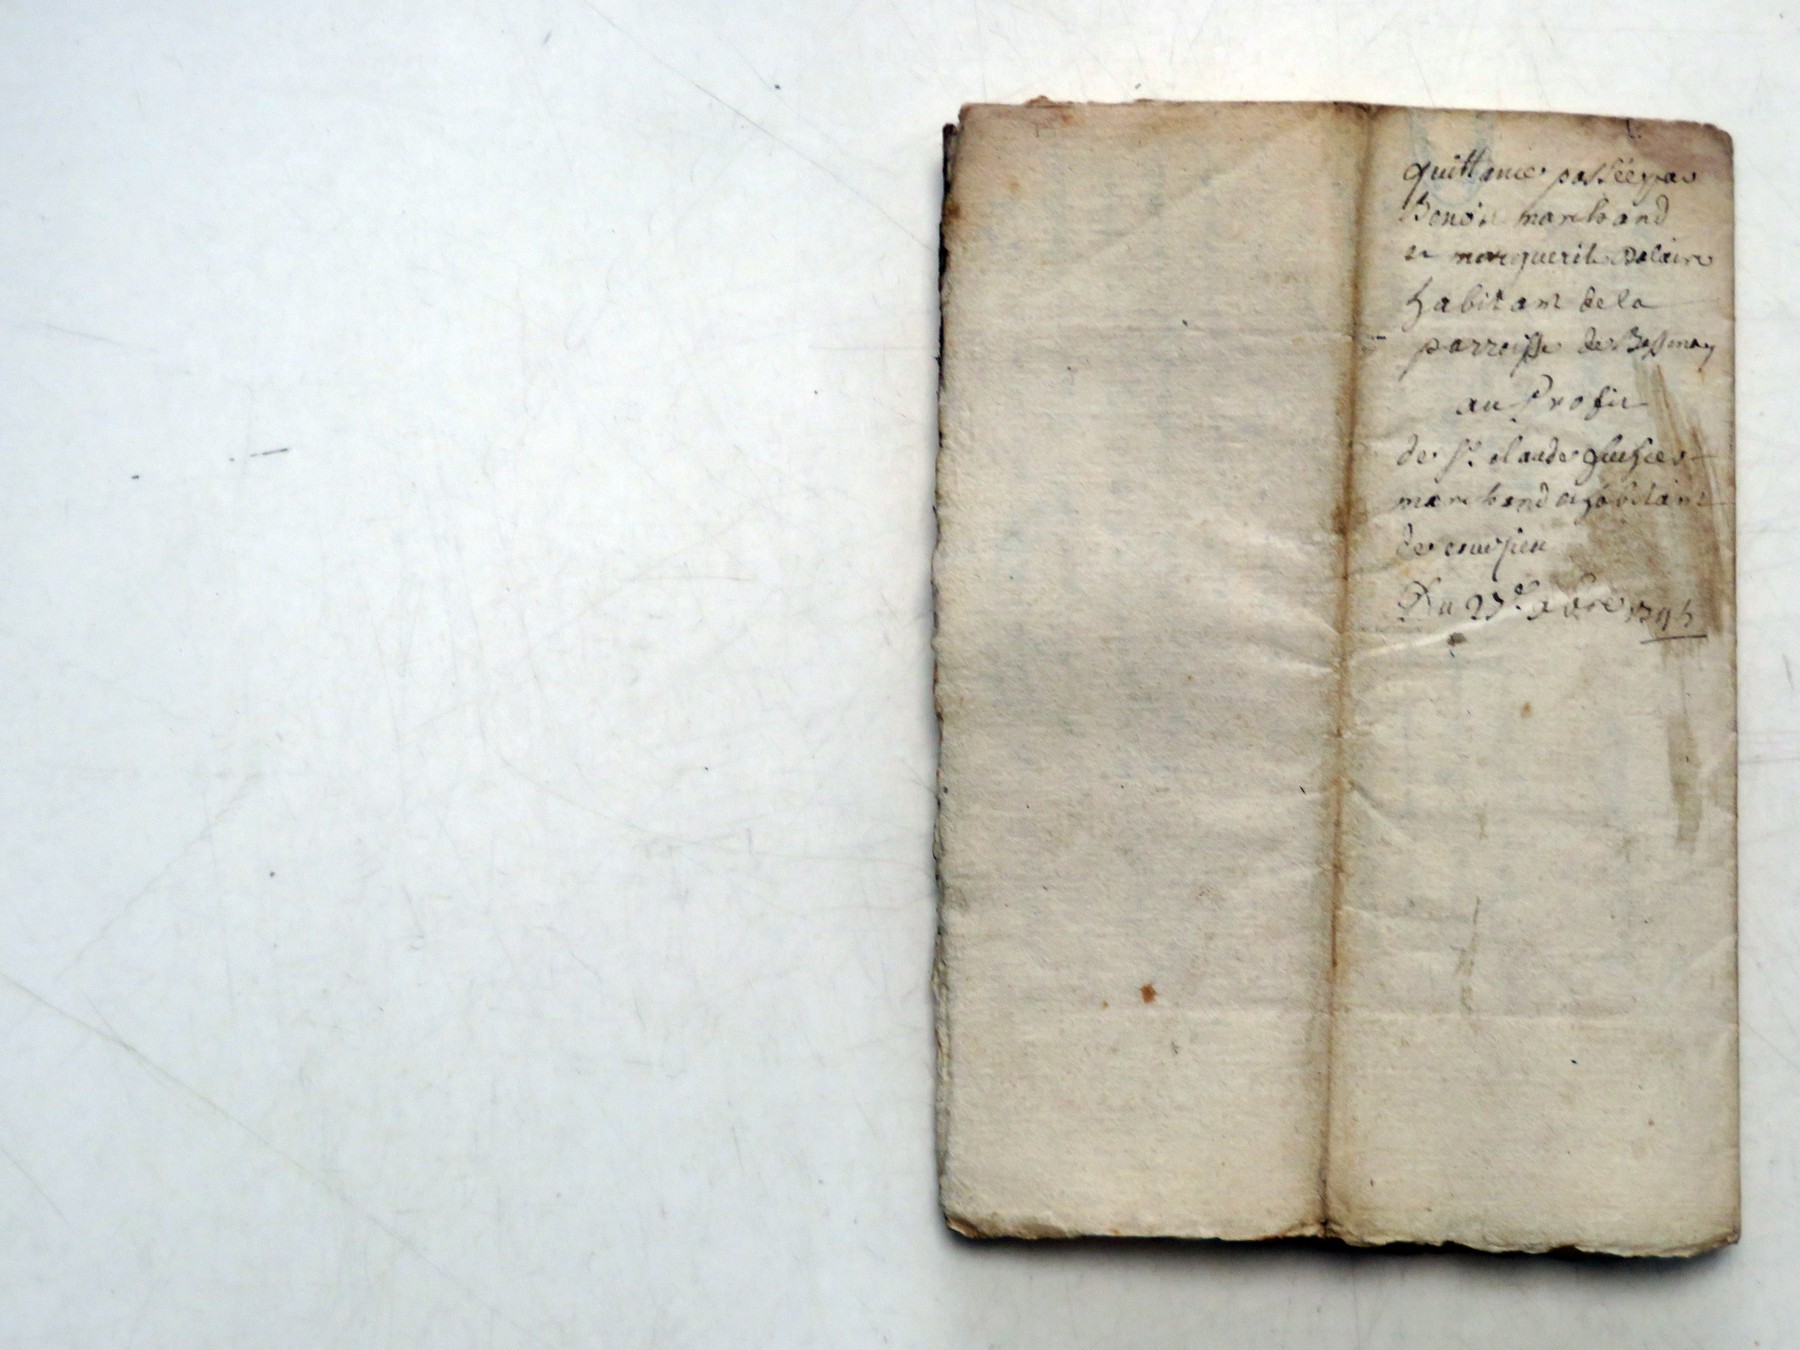 quittance passée par
Benoit marchand
et marguerite Dalaire
habitant de la
parroisse de Bossenay
au Profit
de Sr. claude
marchand et habitant
de
Du 27e 9bre